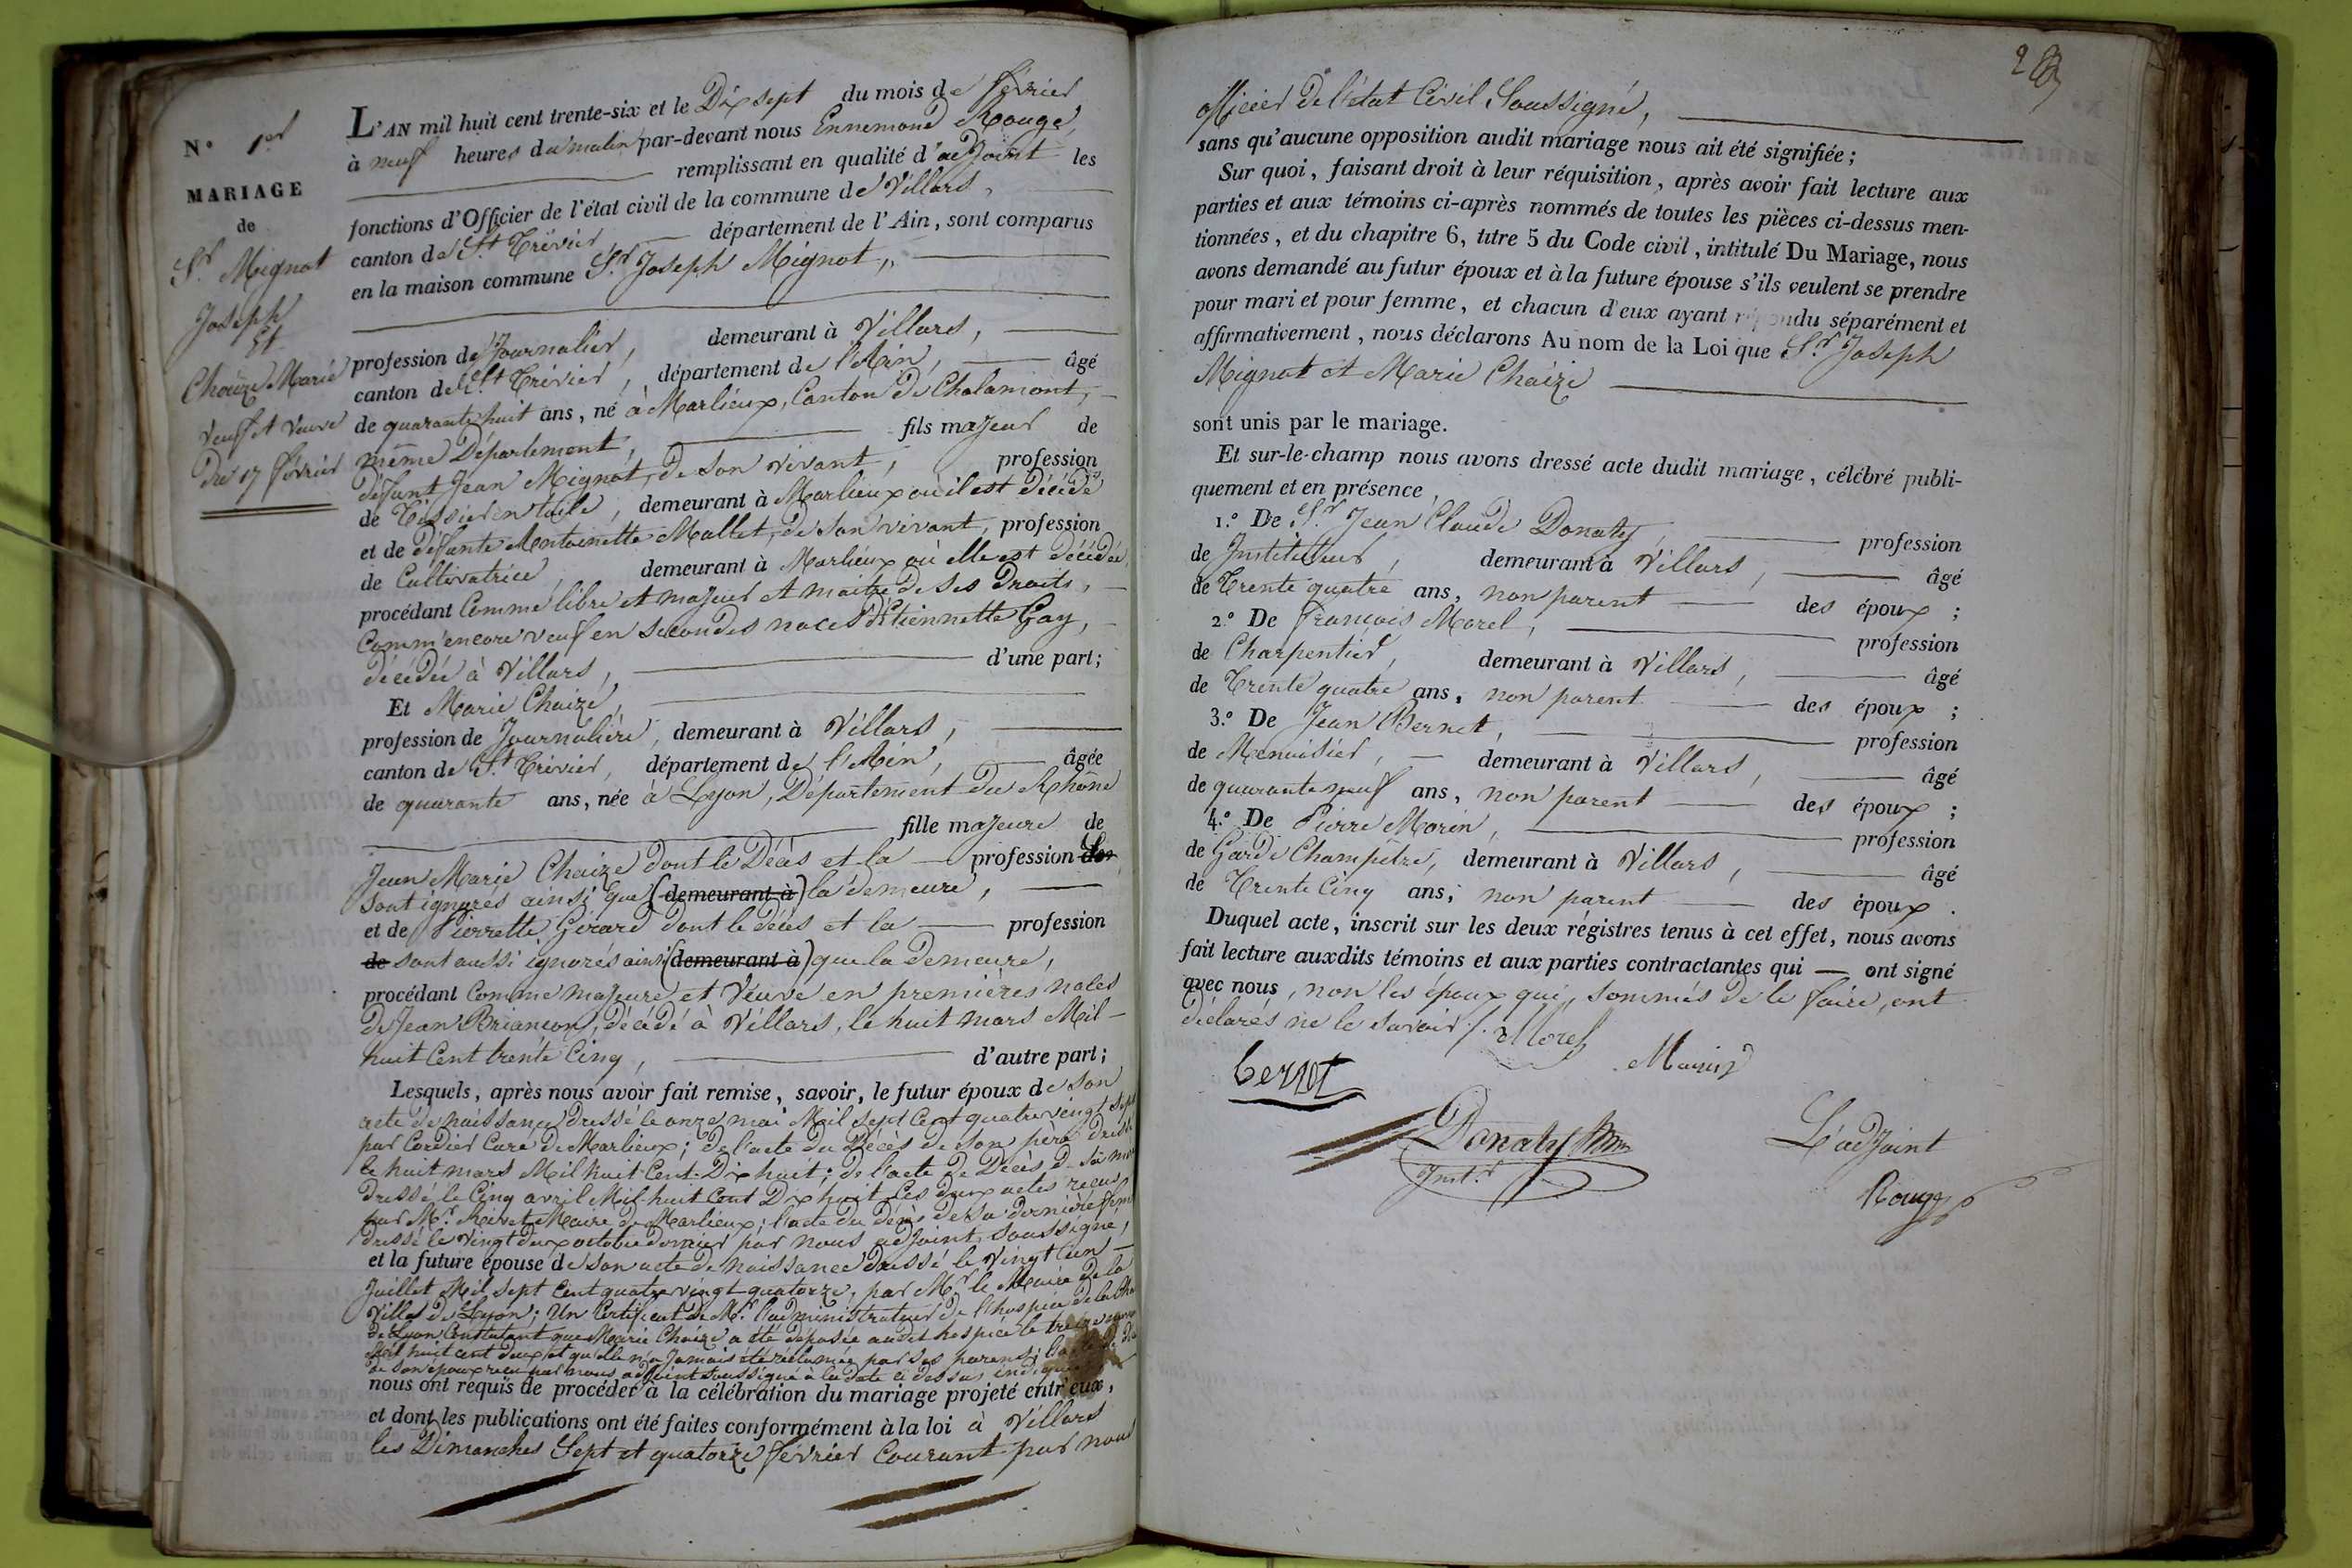 N° 1er
MARIAGE
de
Sr Mignot
Joseph
Et
Chaize Marie
Veuf et Veuve
Du 17 février
L'AN mil huit cent trente-six et le Dix sept du mois de février
à neuf heures du matin par-devant nous Ennemond Rouge,
remplissant en qualité d'adjoint les
fonctions d'Officier de l'état civil de la commune de Villars,
canton de St Trévier département de l'Ain, sont comparus
en la maison commune Sr Joseph Mignot,
profession de Journalier, demeurant à Villars,
canton de St Trévier, département de l'Ain, âgé
de quarante huit ans, né à Marlieux, Canton de Chalamont,
même Département, fils majeur de
défunt Jean Mignot, de son vivant, profession
de Tissier en toile, demeurant à Marlieux où il est décédé
et de défunte Antoinette Mallet, de son vivant, profession
de Cultivatrice, demeurant à Marlieux où elle est décédée,
procédant Comme libre et majeur et maitre de ses Droits,
Comm'encore veuf en secondes noces d'Etiennette Gay,
décédée à Villars, d'une part;
Et Marie Chaize,
profession de Journalière, demeurant à Villars,
canton de St Trévier, département de l'Ain, âgée
de quarante ans, née à Lyon, Département du Rhône
fille majeure de
Jean Marie Chaize dont le Décès et la profession de
sont ignorés ainsi que (demeurant à) la demeure,
et de Pierrette Girard dont le décès et la profession
de sont aussi ignorés ainsi (demeurant à) que la demeure,
procédant Comme majeure et Veuve en premières noces
de Jean Briançon, décédé à Villars, le huit mars Mil-
huit cent trente Cinq, d'autre part;
Lesquels, après nous avoir fait remise, savoir, le futur époux de son
acte de naissance dressé le onze mai Mil sept Cent quatre vingt sept
par Cordier Curé de Marlieux; de l'acte du Décès de son père dressé
le huit mars Mil huit Cent Dix huit; de l'acte de Décès de sa mère
dressé le Cinq avril Mil huit Cent Dix huit les deux actes reçus
par Mr. Rivet Maire de Marlieux; l'acte du décès de sa dernière femme
dressé le vingt deux octobre dernier par nous adjoint soussigné,
et la future épouse de son acte de naissance dressé le Vingt un
Juillet Mil sept Cent quatre vingt quatorze, par Mr le Maire de la
Ville de Lyon; Un Certificat de Mr. l'administrateur de l'hospice de la
de Lyon Constatant que Marie Chaize a été déposée audit hospice le treize
Mil huit cent deux et qu'elle n'a Jamais été réclamée par ses parens;
de son époux reçu par nous adjoint soussigné à la date ci dessus indiquée
nous ont requis de procéder à la célébration du mariage projeté entr'eux,
et dont les publications ont été faites conformément à la loi à Villars
les Dimanches Sept et quatorze février Courant par nous
officier de l'état Civil Soussigné,
sans qu'aucune opposition audit mariage nous ait été signifiée;
Sur quoi, faisant droit à leur réquisition, après avoir fait lecture aux
parties et aux témoins ci-après nommés de toutes les pièces ci-dessus men-
tionnées, et du chapitre 6, titre 5 du Code civil, intitulé Du Mariage, nous
avons demandé au futur époux et à la future épouse s'ils veulent se prendre
pour mari et pour femme, et chacun d'eux ayant répondu séparément et
affirmativement, nous déclarons Au nom de la Loi que Sr. Joseph
Mignot et Marie Chaize
sont unis par le mariage.
Et sur-le-champ nous avons dressé acte dudit mariage, célébré publi-
quement et en présence,
1.° De Sr. Jean Claude Donaty, profession
de Instituteur, demeurant à Villars, âgé
de Trente quatre ans, non parent des époux;
2.° De François Morel, profession
de Charpentier, demeurant à Villars, âgé
de Trente quatre ans, non parent des époux;
3.° De Jean Bernet, profession
de Menuisier, demeurant à Villars, âgé
de quarante neuf ans, non parent des époux;
4.° De Pierre Morin, profession
de Garde Champêtre, demeurant à Villars, âgé
de Trente Cinq ans, non parent des époux.
Duquel acte, inscrit sur les deux régistres tenus à cet effet, nous avons
fait lecture auxdits témoins et aux parties contractantes qui ont signé
avec nous, non les époux qui, sommés de le faire, ont
déclarés ne le savoir. Morel
Morin
Donaty
Instr.
L'adjoint
Rouge